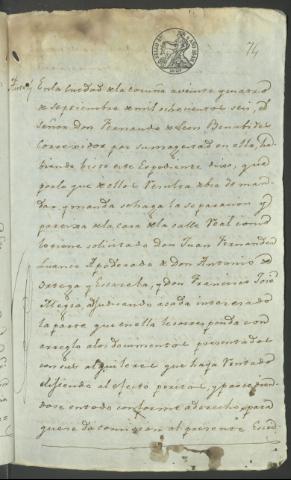 74
Auto En la ciudad de la coruña a veinte y quatro
de septiembre de mil ochocientos seis, el
señor Don Fernando de Leon Benabides
Correxidor por su magestad en ella, ha
biendo bisto este Expediente dixo, que
por lo que de ello resulta debia de man
dar, y manda se haga la separacion y
de la casa de la calle Real como
lo tiene solicitado Don Juan Fernandez
Luanco Apoderado de Don Antonio de
Ortega y y don Francisco Josè
Allegue, adjudicando a cada interesado
la parte que en ella le corresponda con
arreglo a los documentos presentados
con sus alquileres que haya rentado
al efecto peritos, y
dose en todo conforme a derecho, para
que se da comision al presente